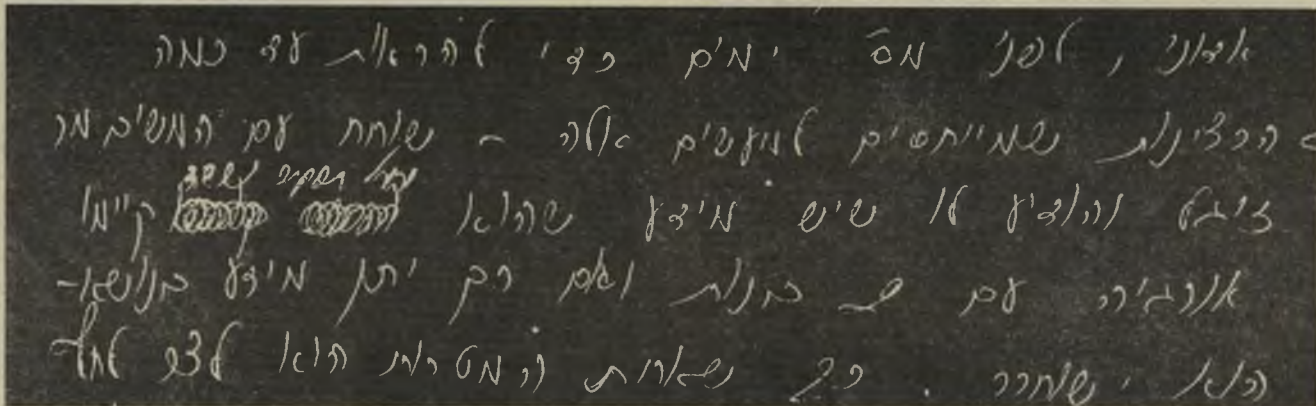 אדוני, לפני מס' ימים כדי להראות עד כמה
הרצינות שמייחסים למעשים אלה - שוחח עם המשיב מר
זיגל והודיע לו שיש מידע שהוא קיימו
אורגיה עם 2 בנות ואם רק יתן מידע בנושא -
הוא ישוחרר. כך נשארות המטרות הוא לצד